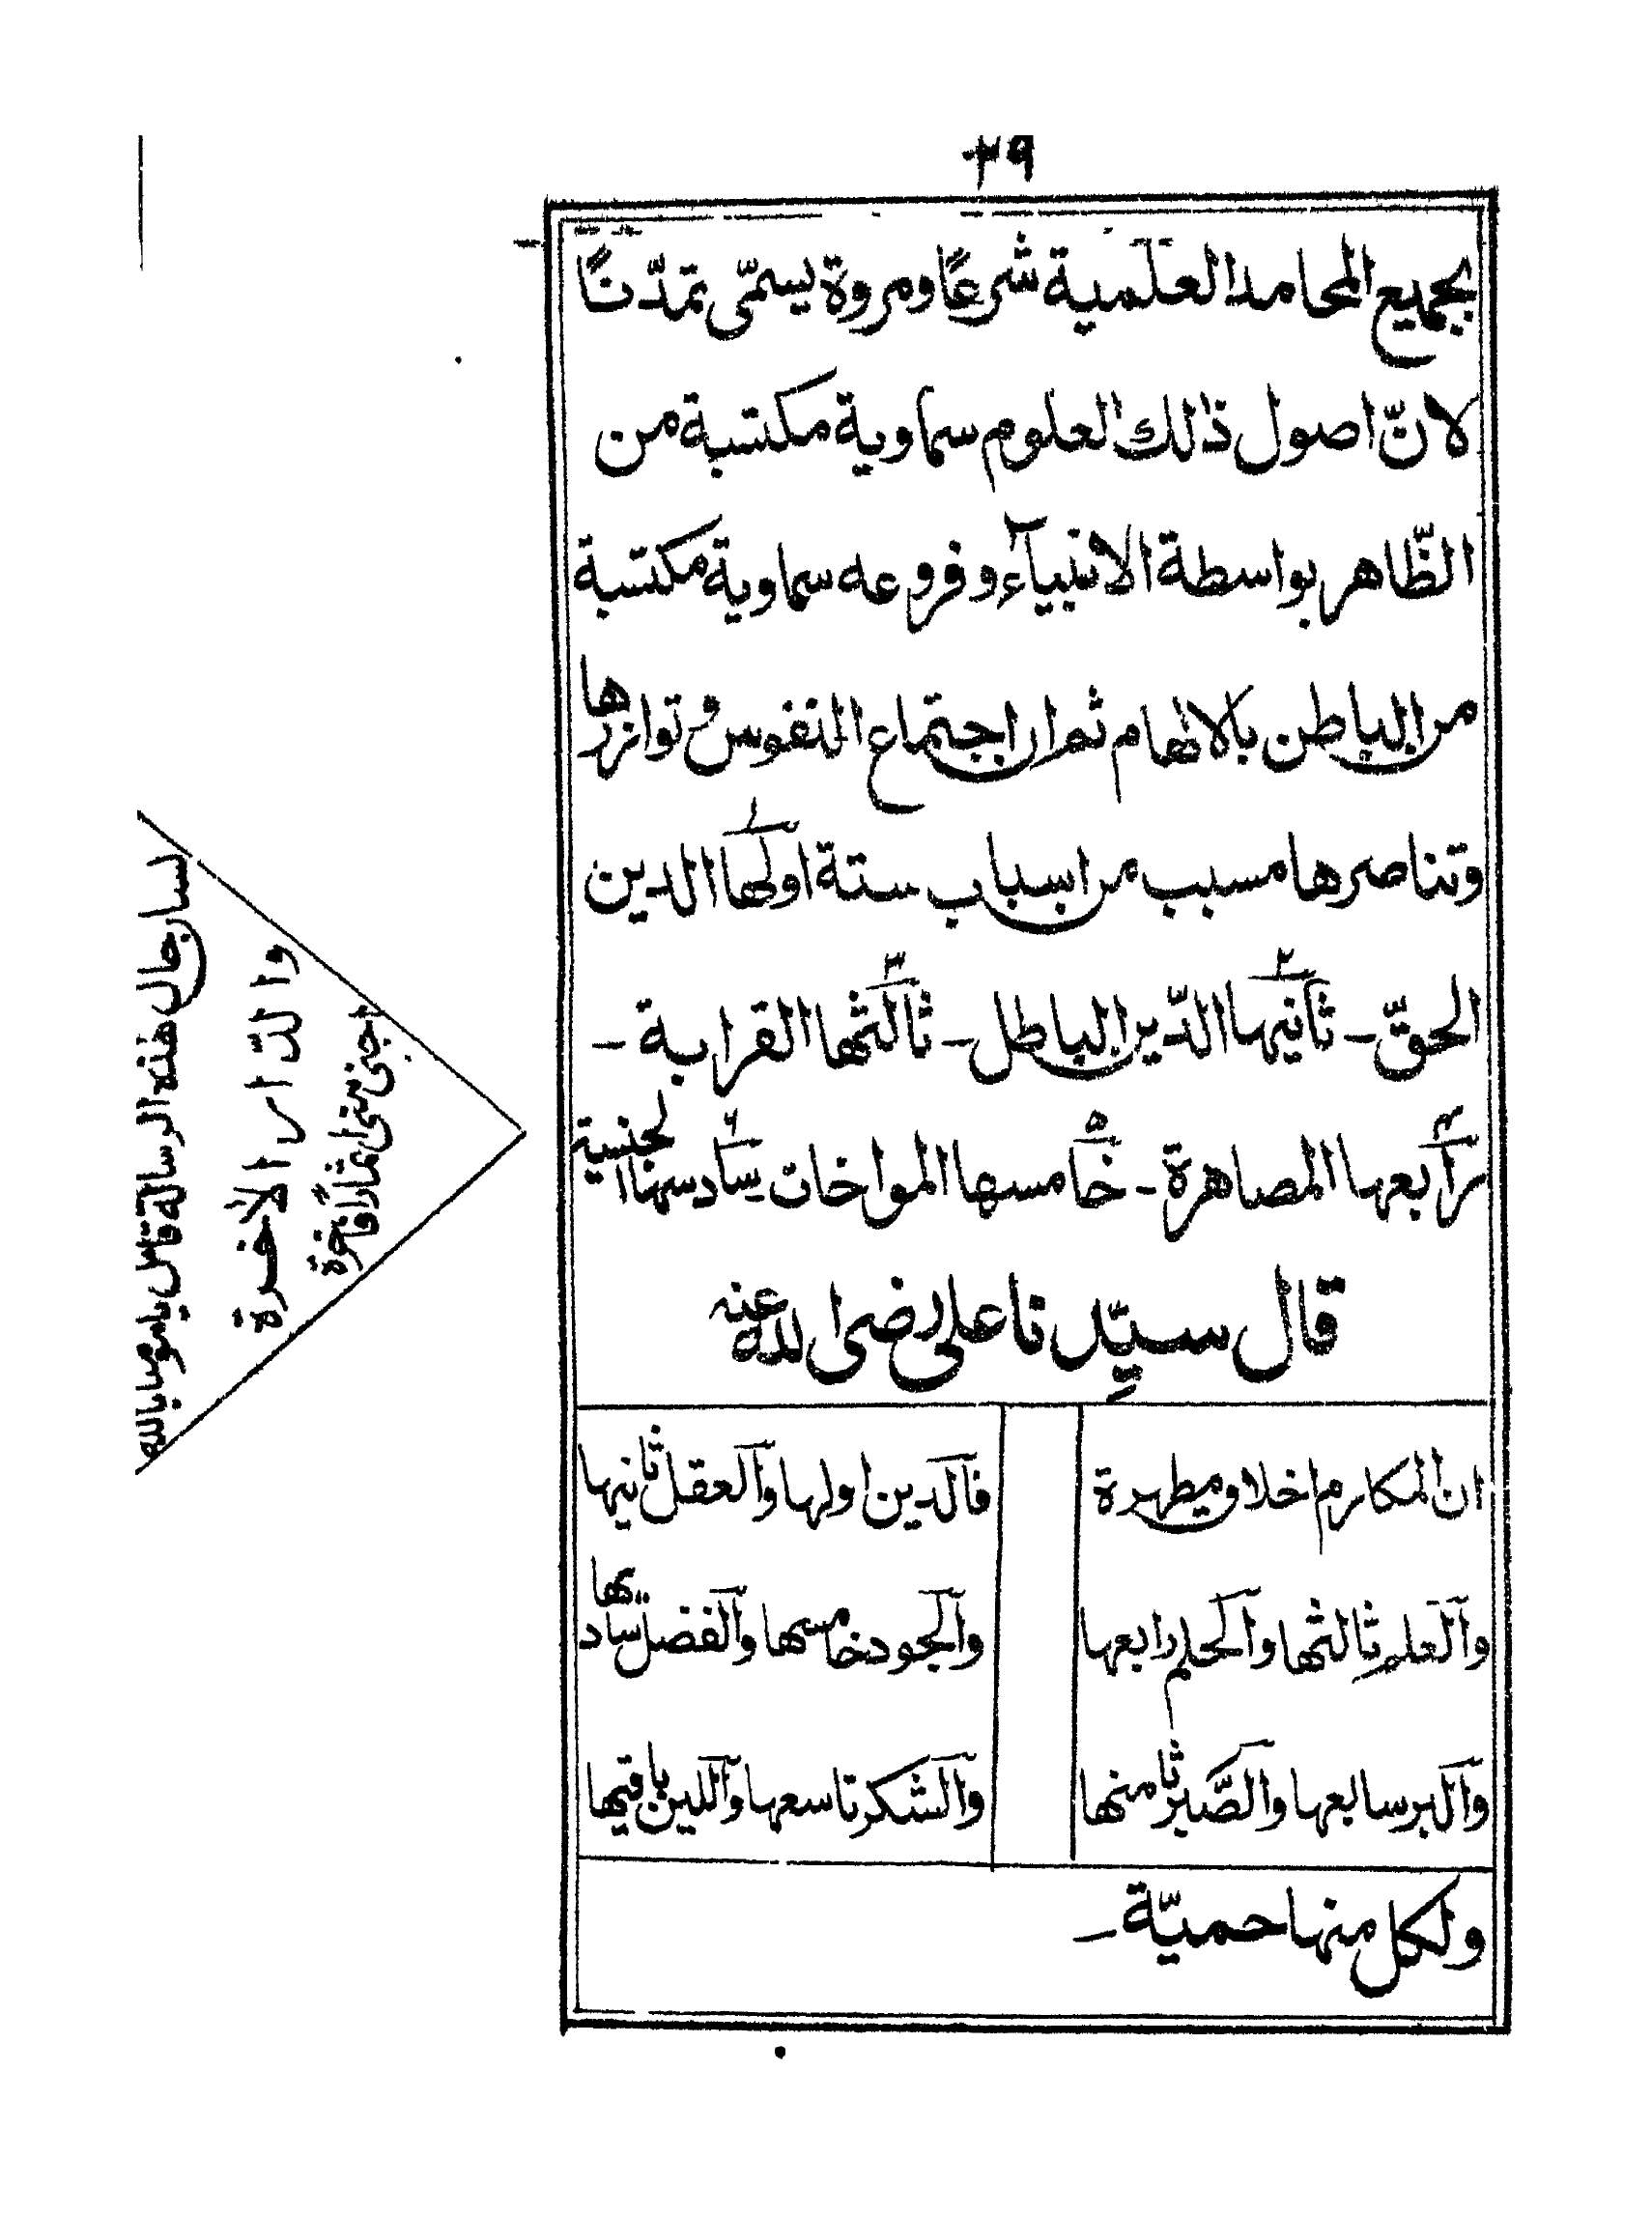 ٢٩
بجميع المحامد العلمية شرعًا ومروة يسمّى تمدّنًا
لانّ اصول ذالك العلوم سماوية مكتسبة من
الظّاهر بواسطة الانبيآء وفروعه سماوية مكتسبة
من الباطن بالالهام ثم ان اجتماع النفوس وتوازرها
وتناصرها مسبب من اسباب ستة اولٰها الدين ١
الحقّ ـ ثانيها ٢ الدّين الباطل ـ ثالثها ٣ القرابة ـ
رابعها ٤ المصاهرة ـ خامسها ٥ المواخات سادسها ٦ الجنسية
قال سيّدنا علي رضى الله عنه
ان المكارم اخلاق مطهرة
فالدين اولها والعقل ثانيها
والعلم ثالثها والحلم رابعها
والجود خامسها والفضل ساديها
والبر سابعها والصّبر ثامنها
والشكر تاسعها واللين باقيها
ولكل منها حميّة ـ
رجال هذه الرسالة
والدّار الآخرة